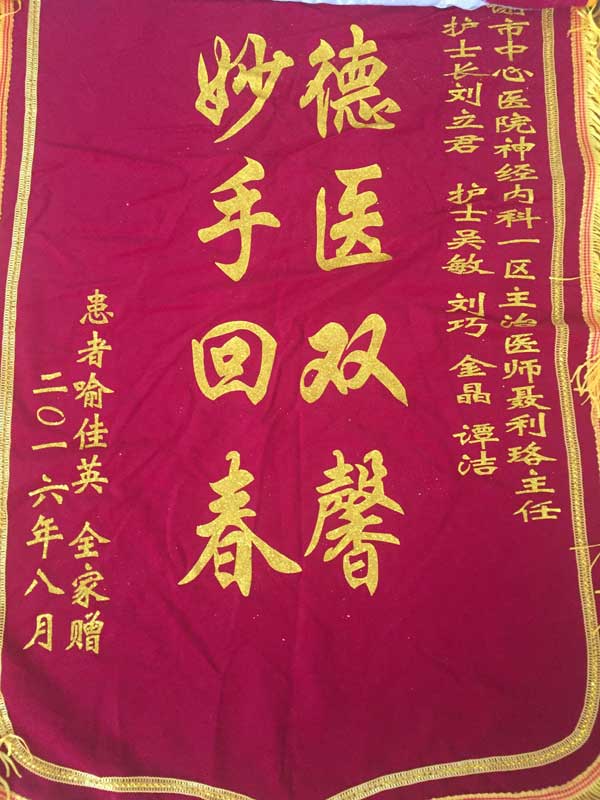 市中心医院神经内科一区主治医师聂利珞主任
护士长刘立君 护士吴敏 刘巧 金晶 谭洁
德医双馨
妙手回春
患者喻佳英 全家赠
二〇一六年八月